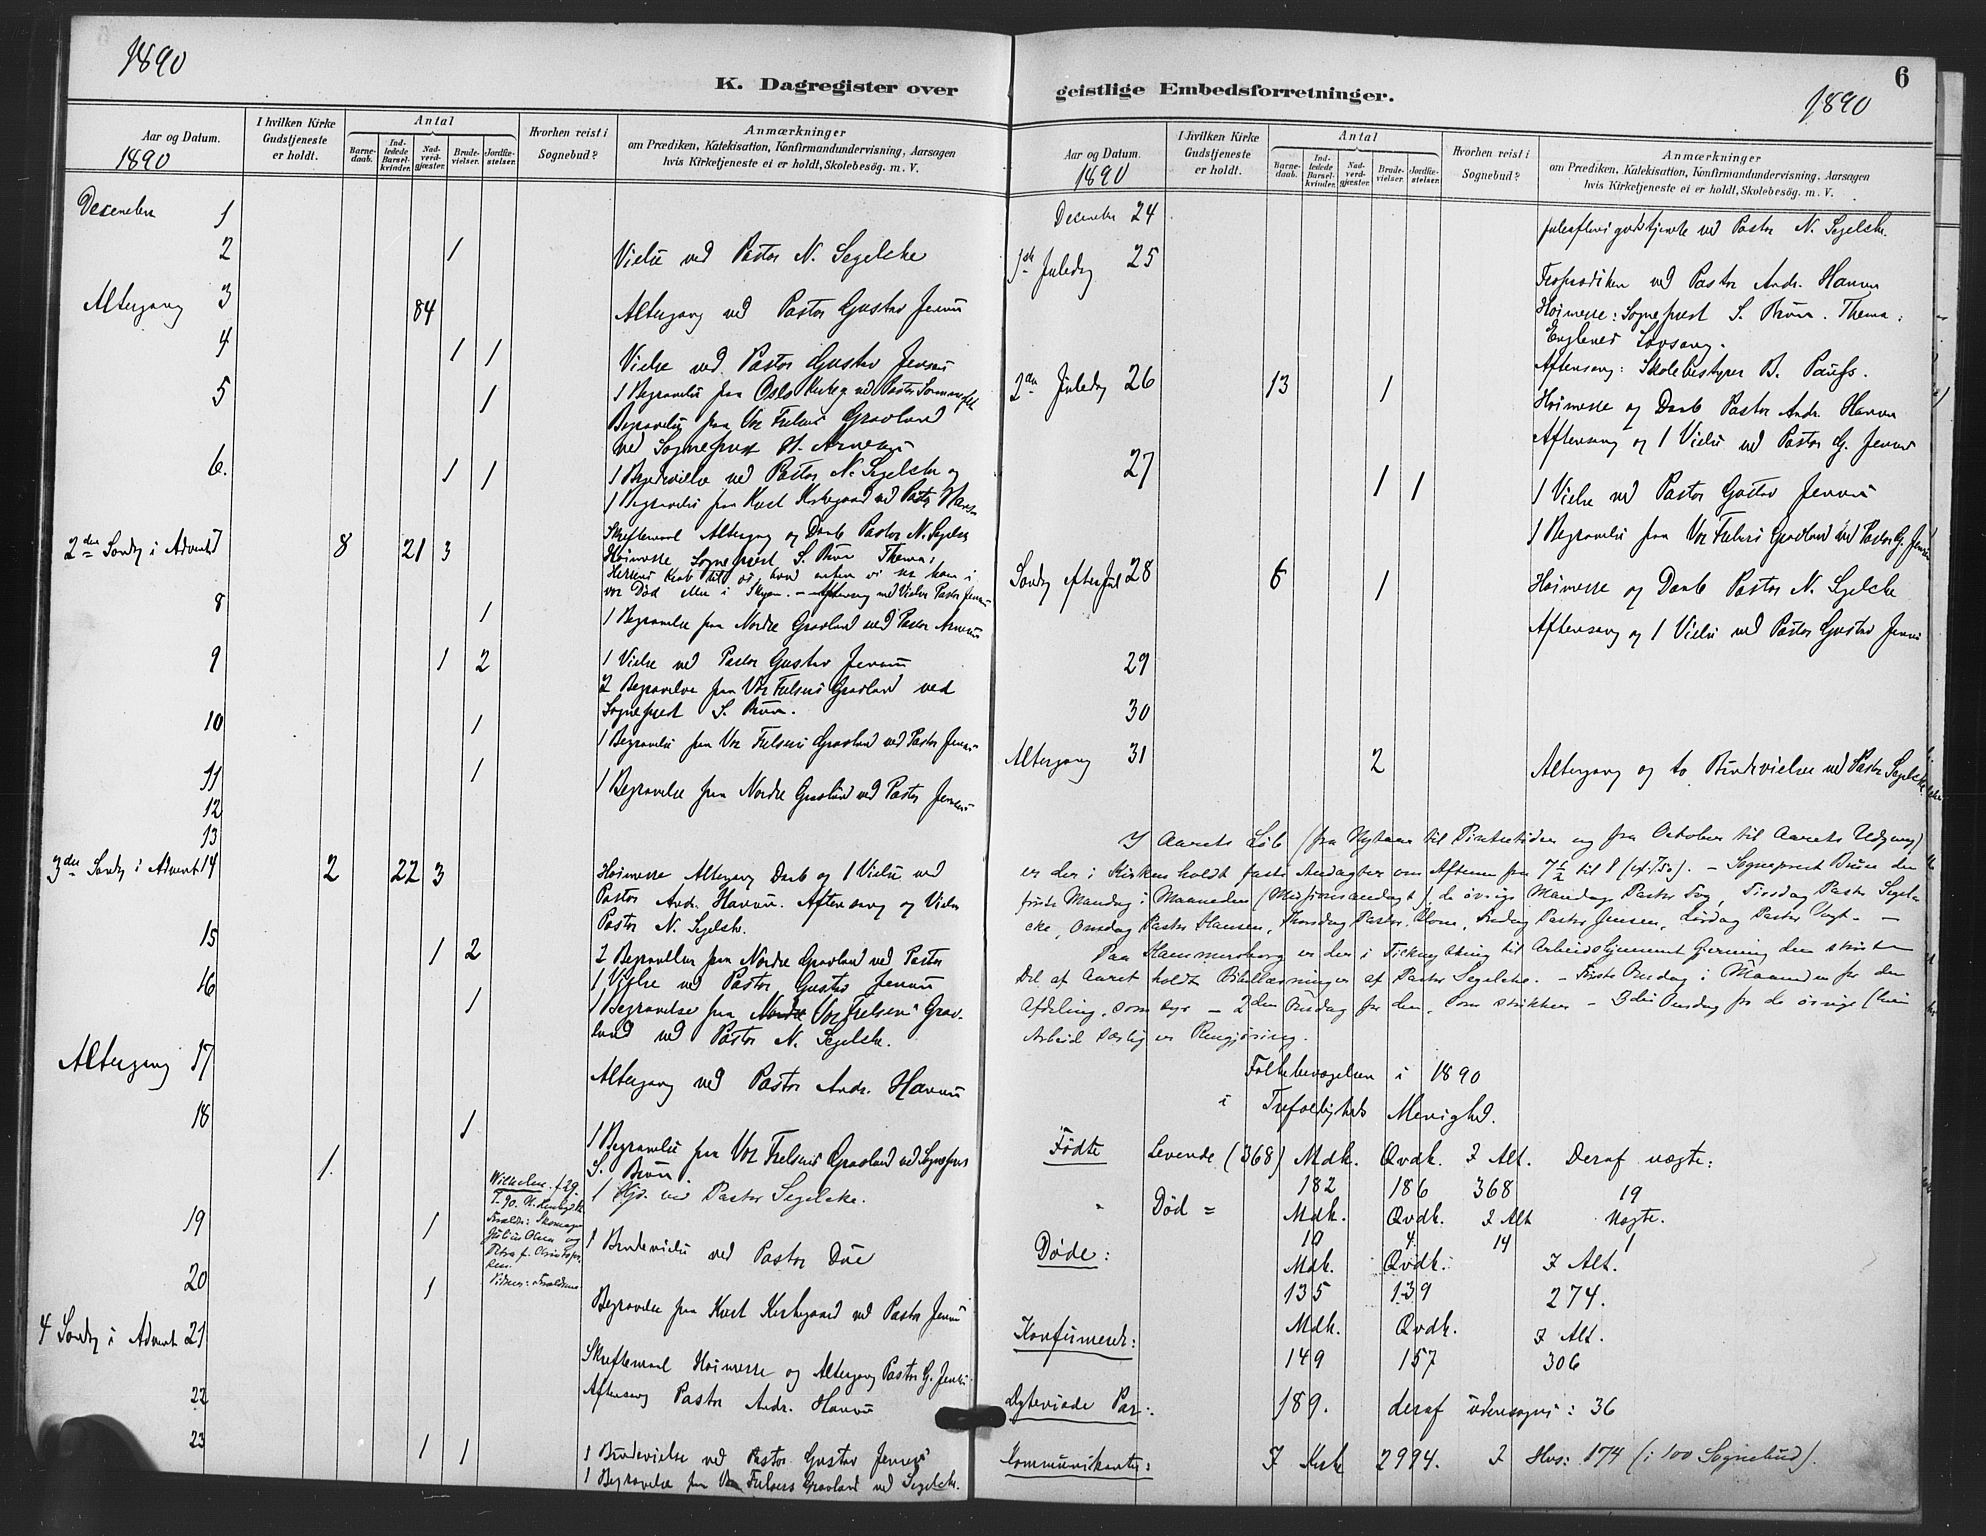 1890
K. Dagregister over
Aar og Datum.
1890
I hvilken Kirke
Gudstjeneste
er holdt.
Antal
Barne-
daab.
Ind-
ledede
Barsel-
kvinder.
Nad-
verd-
gjæster.
Brude-
vielser.
Jordfæ-
stelser.
Hvorhen reist i
Sognebud?
Anmærkninger
om Prædiken, Katekisation, Konfirmandundervisning, Aarsagen
hvis Kirketjeneste ei er holdt, Skolebesøg. m. V.
December 1
2 1 Vielse ved Pastor N. Segelcke
Altergang 3 84 Altergang ved Pastor Gustav Jensen
4 1 1 Vielse ved Pastor Gustav Jensen
1 Begravelse fra Oslo Kirkeg. ved Pastor
5 1 Begravelse fra Vor Frelsers Gravlund
ved Sogneprest H. Arnesen
6. 1 1 1 Brudevielse ved Pastor N. Segelcke og
1 Begravelse fra Kvist Kirkegaard ved Pastor
2den Sondg i Advent 7 8 21 3 Skriftemaal Altergang og Daab Pastor N. Segelcke
Høimesse Sogneprest S. Brun Thema:
vor Død eller i Skyen. – Aftensang med Vielser Pastor Jensen
8 1 1 Begravelse fra Nordre Gravlund ved Pastor Arnesen
9 1 2 1 Vielse ved Pastor Gustav Jensen
2 Begravelser fra Vor Frelsers Gravlund ved
Sogneprest S. Brun.
10 1 1 Begravelse fra Vor Frelsers Gravlund ved Pastor Jensen
11 1 1 Begravelse fra Nordre Gravlund ved Pastor Jensen
12
13
3die Sondg i Advent 14 2 22 3 Høimesse Altergang Daab og 1 Vielse ved
Pastor Andr. Hansen. Aftensang og Vielser
Pastor N. Segelcke.
15 1 2 2 Begravelser fra Nordre Gravlund ved Pastor
1 Vielse ved Pastor Gustav Jensen
16 1 1 Begravelse fra Nordre Vor Frelsers Grav-
lund ved Pastor N. Segelcke.
Altergang 17 Altergang ved Pastor Andr. Hansen
18 1 1 Begravelse fra Vor Frelsers Gravlund ved Sogneprest
S. Brun.
1. 1 Hjd. ved Pastor Segelcke.
Wilhelm f. 29
Forældre: Skomager
Julius Olsen og
19 1 1 Brudevielse ved Pastor Døe
20 1 Begravelse fra Kvist Kirkegaard ved Pastor Jensen
4 Sondg i Advent 21 Skriftemaal Høimesse og Altergang Pastor G. Jensen
Aftensang Pastor Andr. Hansen
22
23 1 1 1 Brudevielse ved Pastor Gustav Jensen
1 Begravelse fra Vor Frelsers Gravlund ved Segelcke.
6
1890
geistlige Embedsforretninger.
Aar og Datum.
1890
I hvilken Kirke
Gudstjeneste
er holdt.
Antal
Barne-
daab.
Ind-
ledede
Barsel-
kvinder.
Nad-
verd-
gjæster.
Brude-
vielser.
Jordfæ-
stelser.
Hvorhen reist i
Sognebud?
Anmærkninger
om Prædiken, Katekisation, Konfirmandundervisning, Aarsagen
hvis Kirketjeneste ei er holdt, Skolebesøg. m. V.
December 24 Juleaftensgudstjeneste ved Pastor N. Segelcke.
1ste Juledag 25 Froprædiken ved Pastor Andr. Hansen
Høimesse: Sogneprest S. Brun. Thema:
Englenes Lovsang.
Aftensang: Skolebestyrer B. Pauss.
2den Juledag 26 13 1 Høimesse og Daab Pastor Andr. Hansen
Aftensang og 1 Vielse ved Pastor G. Jensen
27 1 1 1 Vielse ved Pastor Gustav Jensen
1 Begravelse fra Vor Frelsers Gravlund ved Pastor G. Jensen
Sondg efter Jul 28 6 1 Høimesse og Daab Pastor N. Segelcke
Aftensang og 1 Vielse ved Pastor Gustav Jensen
29
30
Altergang 31 2 Altergang og to Brudevielser ved Pastor Segelcke.
I Aarets Løb (fra Nytaar til Pintsetider og fra October til Aarets Udgang)
er der i Kirken holdt faste Andagter om Aftenen fra 7 1/2 til 8 – Sogneprest Brun den
første Mandag i Maaneden (Missionsandagt), de øvrige Mandage Pastor Tog, Tirsdag Pastor Segel-
cke, Onsdag Pastor Hansen, Thorsdag Pastor Blom, Fredag Pastor Jensen, Lørdag Pastor Vogt. –
Paa Hammersborg er der i Tilknytning til Arbeidshjemmets Gjerning den største
Del af Aaret holdt Bibellæsninger af Pastor Segelcke. – Første Onsdag i Maaneden for den
Afdeling, som syr – 2den Onsdag for den, som strikker – 3die Onsdag for de øvrige (hvis
Arbeid særlig er Rengjøring.
Folkebevægelsen i 1890
i Trefoldigheds Menighed.
Fødte Levende (368) Mdk. Qvdk. I Alt. Deraf uægte:
182 186 368 19
" Død = Mdk. Qvdk. I Alt Uægte.
10 4 14 1
Døde: Mdk. Qvdk. I Alt.
135 139 274.
Konfirmerede: Mdk. Qvdk. I Alt.
149 157 306
Ægteviede Par: 189. deraf udensogns: 36
Kommunikanter: I Kirke 2994. I Hus: 174 (i 100 Sognebud).